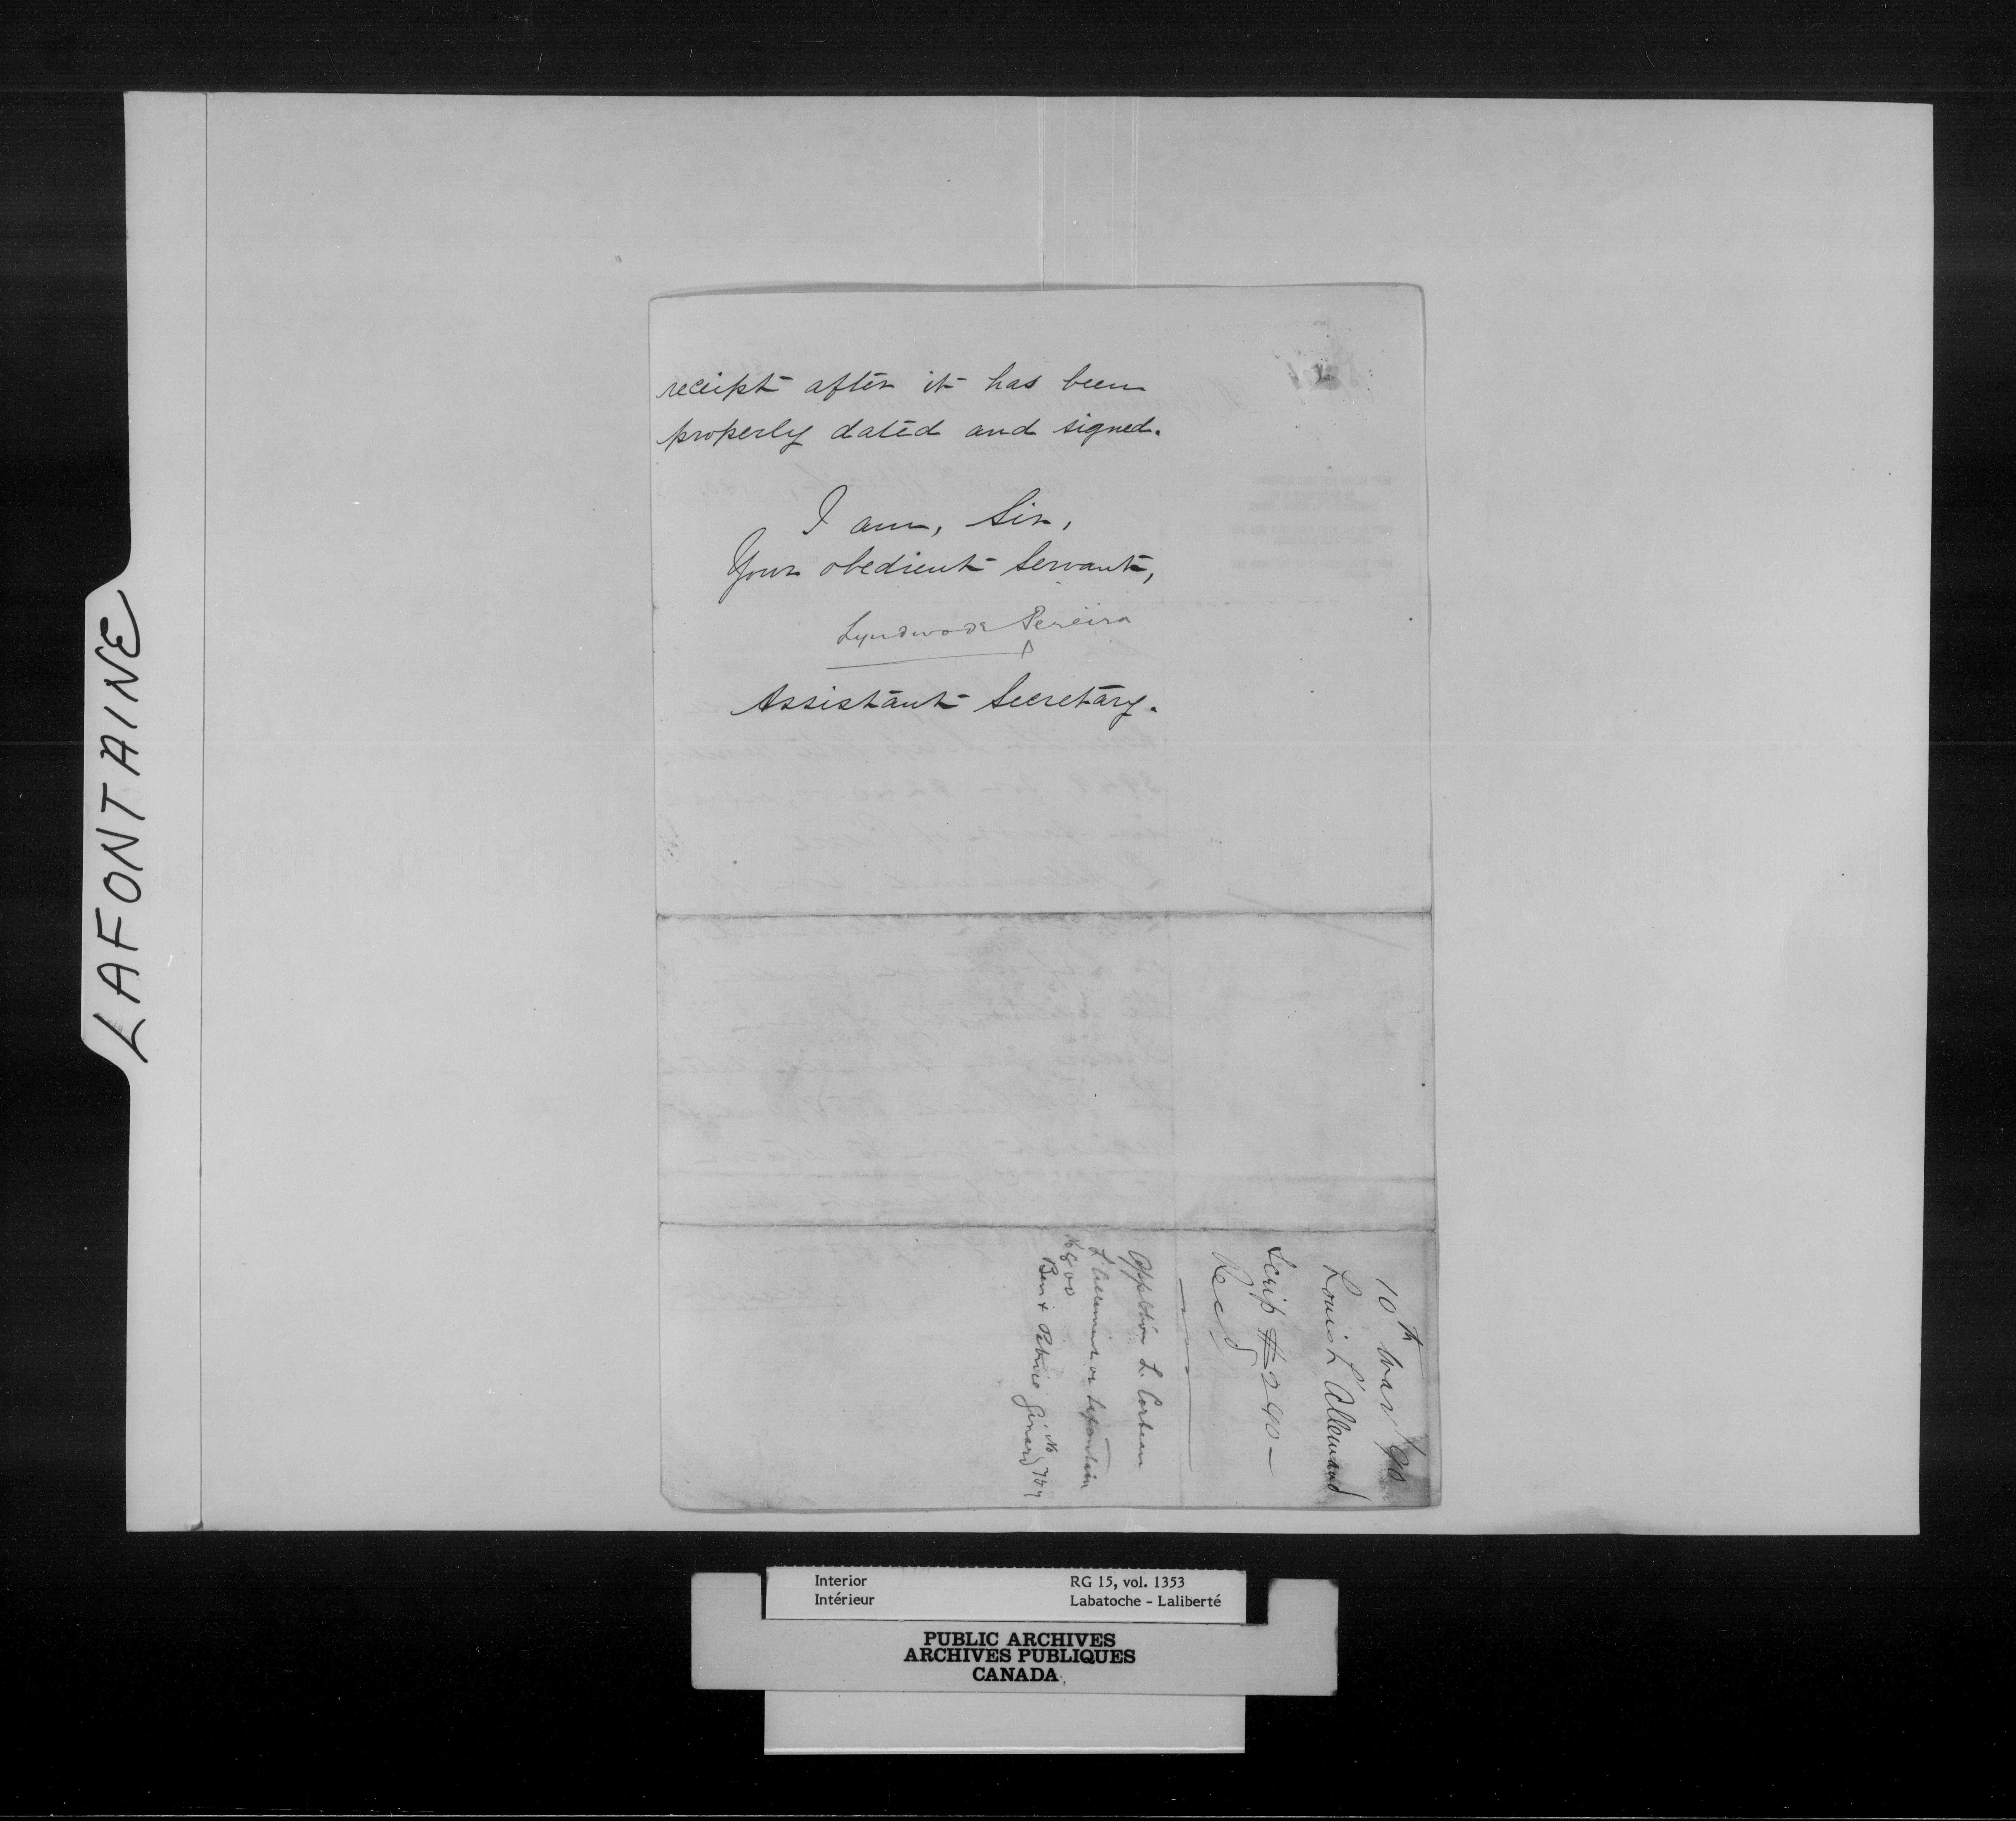 LAFONTAINE
receipt after it has been
properly dated and signed.
I am, Sir,
Your obedient servant,
Lyndwode Pereira
Assistant Secretary.
10th Mar/90
Louis L'Allemand
Scrip $240—
Rec'd
L. Corbeau
L'Allemand or Lafontain
No 757
Interior
Intérieur
RG 15, vol. 1353
Labatoche - Laliberté
PUBLIC ARCHIVES
ARCHIVES PUBLIQUES
CANADA